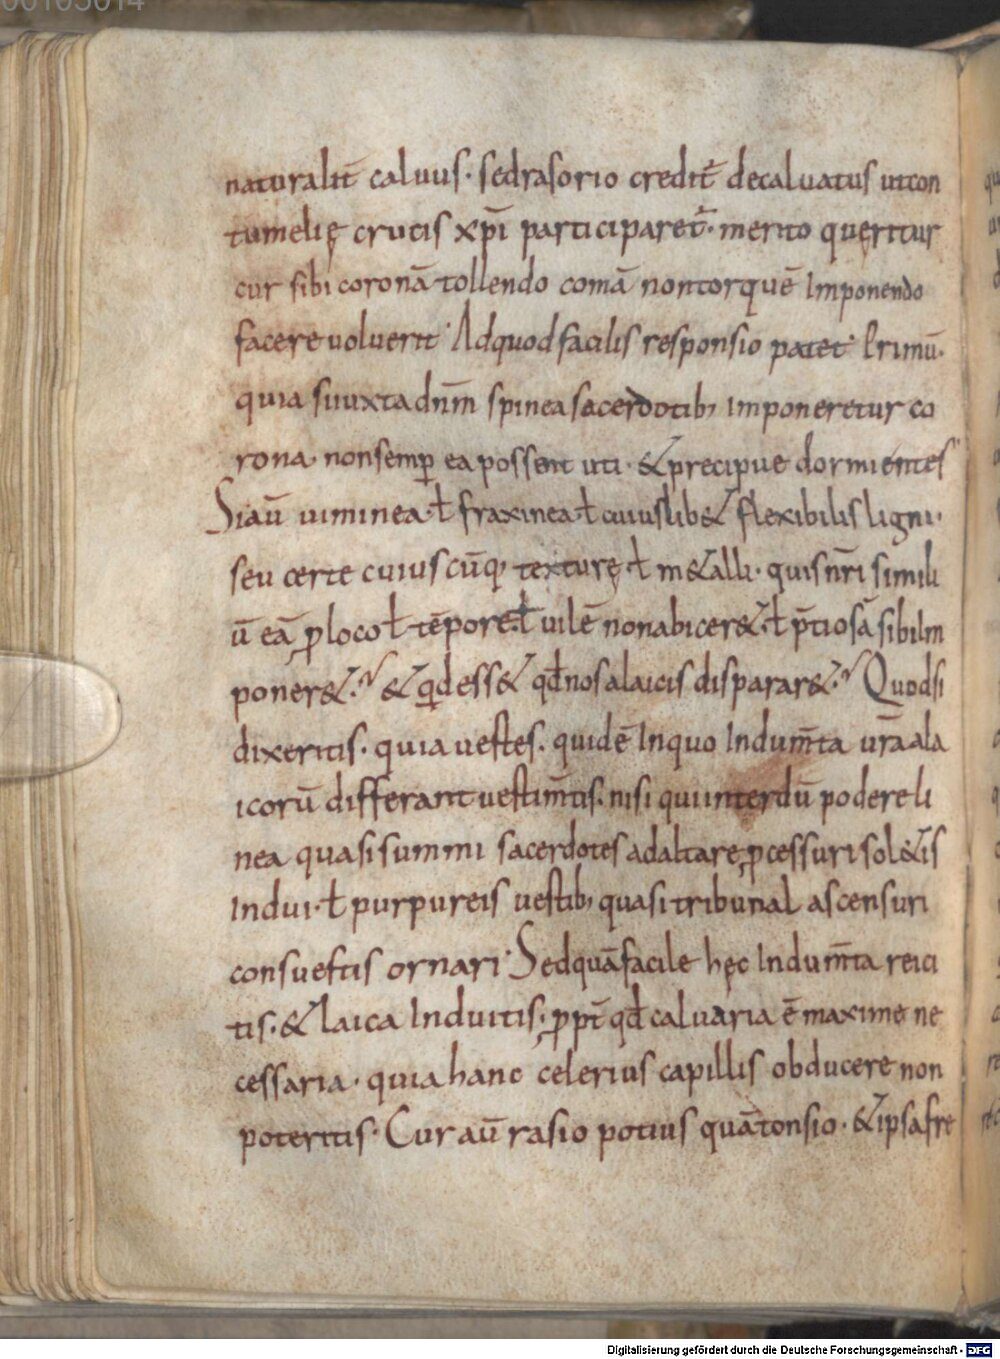 naturalit̄ caluus· sedrasorio credit̄ decaluatus utcon
tumelię crucis xp̄i participaret̄· merito queritur
cur sibi coronā tollendo comā nontorquē Imponendo
facere uoluerit· Adquodfacilis responsio patet· Primū·
quia siiuxta dn̄m spinea sacerdotib; Imponeretur co
rona· nonsemp̄ ea possent uti· & precipue dormientes·
Siaū uiminea· ł fraxinea· ł cuiuslib& flexibilis ligni·
seu certe cuiuscūq; texturę ł m&alli· quisnr̄i simili
ū eā p̱ loco ł tēpore· ł uilē nonabicer&· ł p̄tiosā sibiIm
poner&· & qd̄ ess& qd̄ nos alaicis disparar&· Quodsi
dixeritis· quia uestes· quidē Inquo Indum̄ta ur̄aala
icorū differant uestim̄tis· nisi quiinterdū podere li
nea quasisummi sacerdotes adaltare p̱cessuri sol&is
Indui· ł purpureis uestib; quasi tribunal ascensuri
consuestis ornari· Sedquāfacile hęc Indum̄ta reici
tis· & laica Induitis· p̱pt̄ qd̄ caluaria ē maxime ne
cessaria· quia hanc celerius capillis obducere non
poteritis· Cur aū rasio potius quātonsio· & ipsa fre
Digitalisierung gefördert durch die Deutsche Forschungsgemeinschaft - DFG